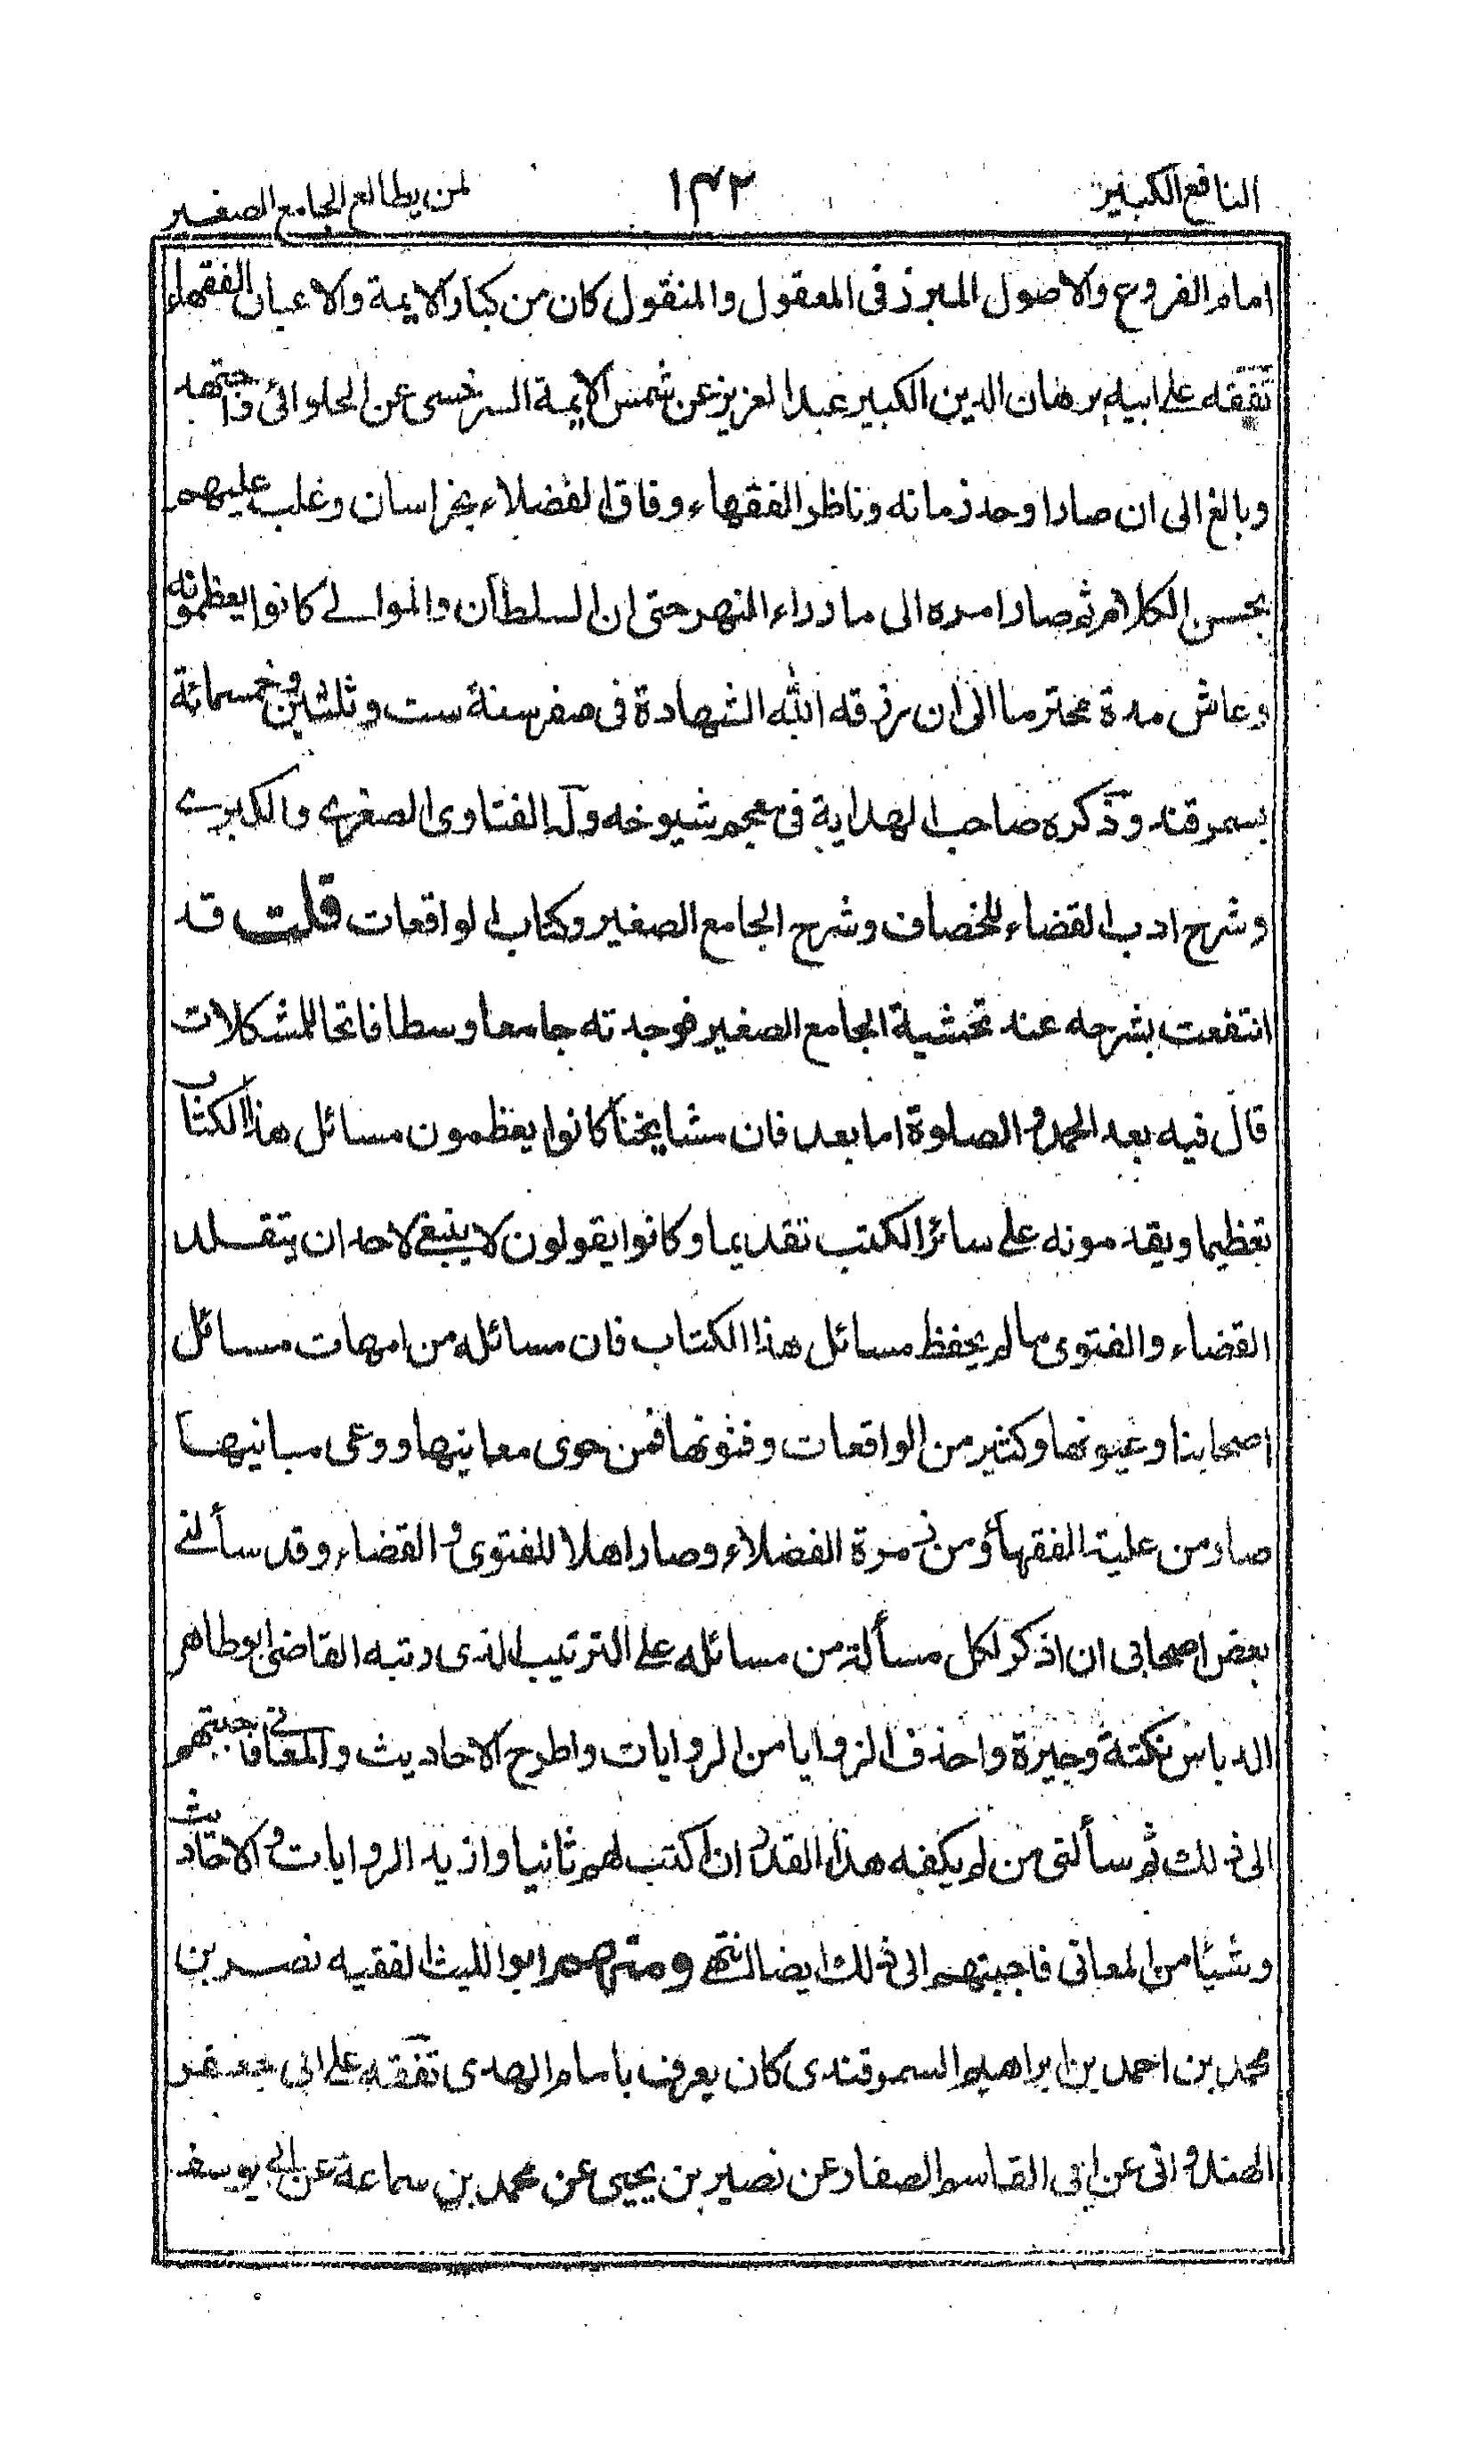 النافع الكبير ١٣٢ لمن يطالع الجامع الصغير
امام الفروع والاصول المبرز فى المعقول والمنقول كان من كبار الايمة والاعيان الفقهاء
تفقه على ابيه برهان الدين الكبير عبد العزيز عن شمس الايمة السرخسى عن الحلوائى واجتهد
وبالغ الى ان صار اوحد زمانه وناظر الفقهاء وفاق الفضلاء بخراسان وغلب عليهم
بحسن الكلام ثم صار امره الى ما وراء النهر حتى ان السلطان والموالى كانوا يعظمونه
وعاش مدة محترما الى ان رزقه الله الشهادة فى صفر سنة ست وثلثين وخمسمائة
بسمرقند وذكره صاحب الهداية فى معجم شيوخه وله الفتاوى الصغرى والكبرى
وشرح ادب القضاء للخصاف وشرح الجامع الصغير وكتاب الواقعات قلت قد
انتفعت بشرحه عند تحشية الجامع الصغير فوجدته جامعا وسطا فاتحا للمشكلات
قال فيه بعد الحمد والصلوة اما بعد فان مشايخنا كانوا يعظمون مسائل هذا الكتاب
تعظيما ويقدمونه على سائر الكتب تقديما وكانوا يقولون لا ينبغى لاحد ان يتقلد
القضاء والفتوى مالم يحفظ مسائل هذا الكتاب فان مسائله من امهات مسائل
اصحابنا وعيونها وكثير من الواقعات وفنونها فمن حوى معانيها ووعى مبانيها
صار من علية الفقهاء ومن زمرة الفضلاء وصار اهلا للفتوى والقضاء وقد سألنى
بعض اصحابى ان اذكر لكل مسألة من مسائله على الترتيب الذى رتبه القاضى ابو طاهر
الدباس نكتة وجيزة واحذف الزوايا من الروايات واطرح الاحاديث والمعانى فاجبتهم
الى ذلك ثم سألنى من لم يكفه هذا القدر ان اكتب لهم ثانيا وازيد الروايات والاحاديث
وشيئا من المعانى فاجبتهم الى ذلك ايضا انتهى ومنهم ابو الليث الفقيه نصر بن
محمد بن احمد بن ابراهيم السمرقندى كان يعرف بامام الهدى تفقه على ابى جعفر
الهندوانى عن ابى القاسم الصفار عن نصير بن يحيى عن محمد بن سماعة عن ابى يوسف